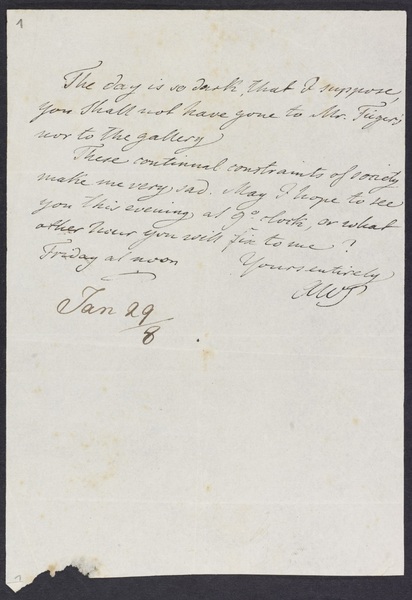 1
The day is so dark, that I suppose,
you shall not have gone to Mr. Füger's
nor to the gallery
These continual constraints of society
make me very sad. May I hope to see
you this evening at 9 o clock, or what
other hour you will fix to me?
Friday at noon Yours entirely
AWS
Jan 29
/8